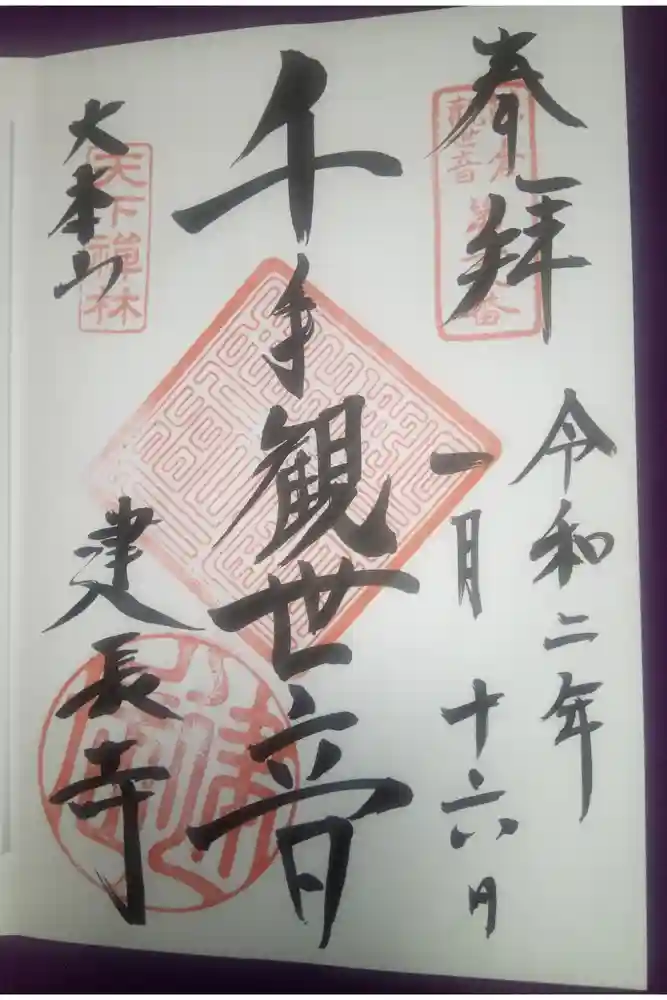 奉拝
令和二年
一月十六日
千手観世音
大本山
建長寺
天下禅林